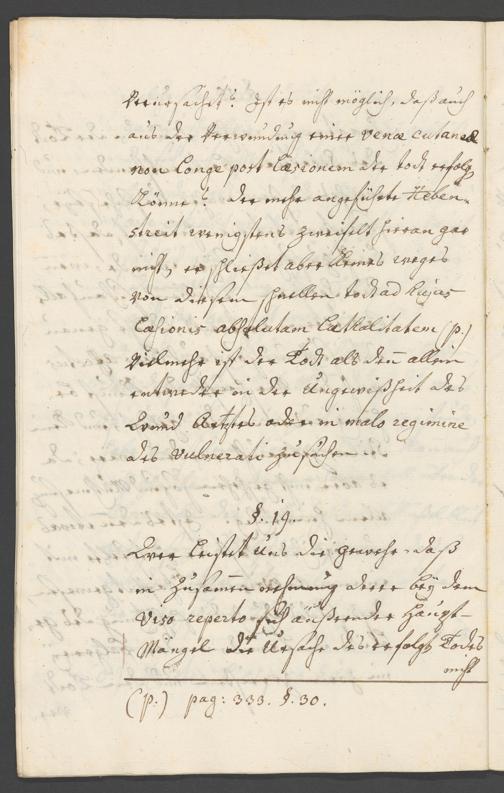 verursachet? Ist es nicht möglich, daß auch
aus der Verwundung einer venæ cutaneæ
non longe post læsionem der todt erfolgen
könne? der mehr angeführte Heben-
streit wenigstens zweifelt hieran gar
nicht, er schließet aber keines weges
von diesem schnellen todt ad hujus
læsionis absolutam lethalitatem (p.)
vielmehr ist der Todt als denn allein
entweder in der Ungewißheit des
Wund Arztes oder in malo regimine
des vulnerati zu suchen.
§. 19.
Wer leistet Uns die gewehr, daß
in Zusammen rechnung derer bey dem
Viso reperto sich äußernder Haupt-
Mängel die Ursache des erfolgten Todes
nicht
(p.) pag: 333. §. 30.